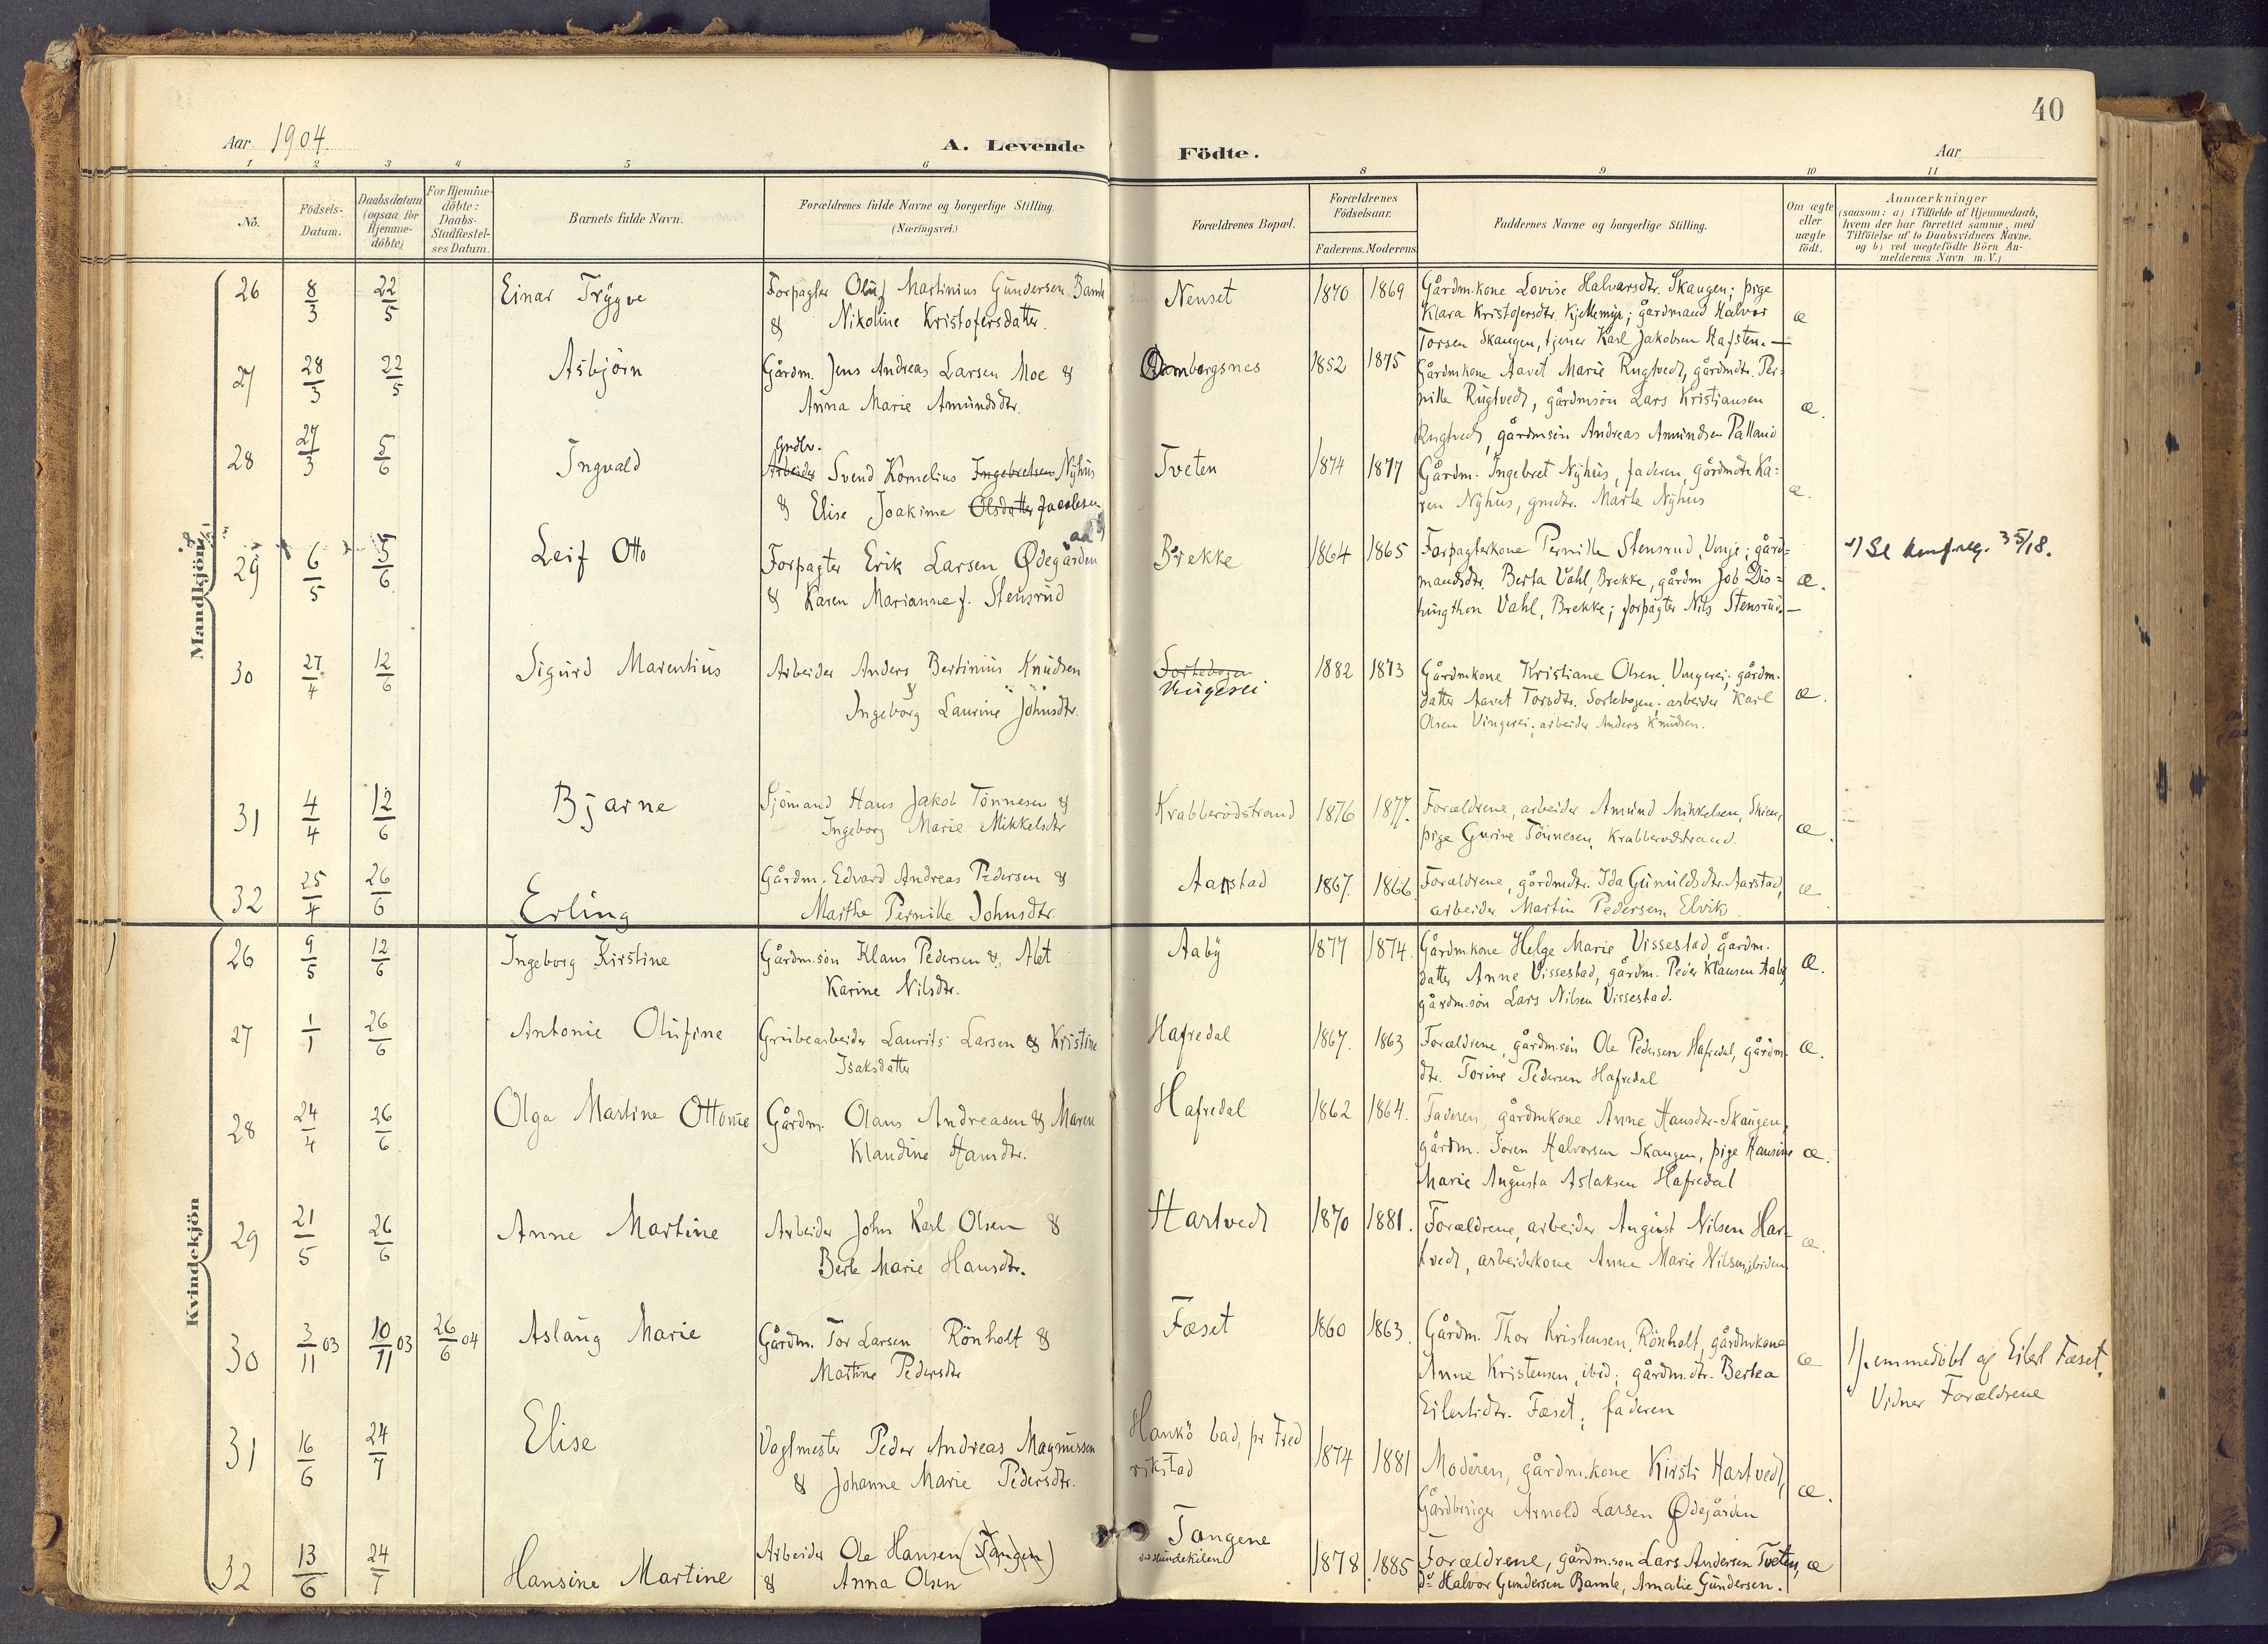 40
Aar 1904.
A. Levende
Födte.
Aar
1 2 3 4 5 6 8 9 10 11
No.
Födsels-
Datum.
Daabsdatum
(ogsaa for
Hjemme-
döbte)
For Hjemme-
döbte:
Daabs-
Stadfæstel-
ses Datum.
Barnets fulde Navn.
Forældrenes fulde Navne og borgerlige Stilling.
(Næringsvei.)
Forældrenes Bopæl.
Forældrenes
Födselsaar.
Faderens. Moderens
Faddernes Navne og borgerlige Stilling.
Om ægte
eller
uægte
födt.
Anmærkninger
(saasom: a) i Tilfælde af Hjemmedaab,
hvem der har forrettet samme, med
Tilföielse af to Daabsvidners Navne.
og b) ved uægtefödte Börn An-
melderens Navn m. V.)
Mandkjön
26 8/3 22/5 Einar Trygve
Forpagter Oluf Martinius Gundersen Bamle
& Nikoline Kristofersdatter.
Nenset 1870 1869
Gårdm.kone Lovise Halvarsdtr. Skaugen; pige
Klara Kristofersdtr. Kjellemyr; gårdmand Halvor
Torsen Skaugen, tjener Karl Jakobsen Hafsten. —
æ
27 28/3 22/5 Asbjörn
Gårdm. Jens Andreas Larsen Moe &
Anna Marie Amundsdtr.
Omborgsnes 1852 1875
Gårdmkone Aavet Marie Rugtvedt, gårdmdtr. Per-
nille Rugtvedt, gårdmsön Lars Kristiansen
Rugtvedt, gårdmsön Andreas Amundsen Palland
æ.
28 27/3 5/6 Ingvald
Gmdbr.
Arbeider Svend Kornelius Ingebretsen Nyhus
& Elise Joakime Olsdatter Jacobsen
Tveten 1874 1877
Gårdm. Ingebret Nyhus, faderen, gårdmdtr. Ka-
ren Nyhus, gmdtr. Marte Nyhus
æ.
29 6/5 5/6 Leif Otto
Forpagter Erik Larsen Ødegården
& Karen Marianne f. Stensrud
Brekke 1864 1865
Forpagterkone Pernille Stensrud, Vinje; gård-
mandsdtr. Berta Vahl, Brekke, gårdm Job Dis-
hington Vahl, Brekke; forpagter Nils Stensrud. —
æ.
Se konf.reg. 35/18.
30 27/4 12/6 Sigurd Marentius
Arbeider Anders Bertinius Knudsen
& Ingeborg Laurine Johnsdtr.
Sortebogen
1882 1873
Gårdmkone Kristiane Olsen Vingerei; gårdm.
datter Aavet Torsdtr. Sortebogen; arbeider Karl
Olsen Vingerei; arbeider Anders Knudsen.
æ.
31 4/4 12/6 Bjarne
Sjömand Hans Jakob Tönnesen &
Ingeborg Marie Mikkelsdtr
Krabberödstrand 1876 1877.
Forældrene, arbeider Amund Mikkelsen, Skien,
pige Gurine Tönnesen, Krabberödstrand.
æ.
32 25/4 26/6 Erling
Gårdm. Edvard Andreas Pedersen &
Marthe Pernille Johnsdtr.
Aarstad 1867. 1866
Forældrene, gårdmdtr. Ida Gunuldsdtr. Aarstad,
arbeider Martin Pedersen Elvik
æ
Kvindekjön
26 9/5 12/6 Ingeborg Kirstine
Gårdm.sön Klaus Pedersen & Alet
Karine Nilsdtr.
Aaby 1877 1874.
Gårdm.kone Helge Marie Vissestad, gårdm.
datter Anne Vissestad, gårdm. Peder Klausen Aaby
gårdm.sön Lars Nilsen Vissestad.
æ.
27 1/1 26/6 Antonie Olufine
Grubearbeider Laurits Larsen & Kristine
Isaksdatter
Hafredal 1867. 1863
Forældrene, gårdm.sön Ole Pedersen Hafredal, gårdm.
dtr. Torine Pedersen Hafredal
æ.
28 24/4 26/6 Olga Martine Ottonie
Gårdm. Olaus Andreasen & Maren
Klaudine Hansdtr.
Hafredal 1862 1864.
Faderen, gårdmkone Anne Hansdtr. Skaugen,
gårdm. Sören Halvorsen Skaugen, pige Hansine
Marie Augusta Aslaksen Hafredal
æ.
29 21/5 26/6 Anne Martine
Arbeider John Karl Olsen &
Berte Marie Hansdtr.
Hartvedt 1870 1881.
Forældrene, arbeider August Nilsen Har-
tvedt, arbeiderkone Anne Marie Nilsen, ibidem
æ.
30 3/11 03 10/11 03 26/6 04 Aslaug Marie
Gårdm. Tor Larsen Rönholt &
Martine Pedersdtr
Fæset 1860 1863.
Gårdm. Thor Kristensen, Rönholt, gårdmkone
Anne Kristensen, ibid; gårdm.dtr. Bertea
Eilertsdtr. Fæset; faderen
æ
Hjemmedöbt af Eilert Fæset.
Vidner Forældrene
31 16/6 24/7 Elise
Vagtmester Peder Andreas Magnussen
& Johanne Marie Pedersdtr.
Hankö bad, pr Fred
rikstad
1874 1881
Moderen, gårdm.kone Kirsti Hartvedt,
Gårdbruger Arnold Larsen Ødegården
æ.
32 13/6 24/7 Hansine Martine
Arbeider Ole Hansen (Tangen)
& Anna Olsen
Tangene
ved Hundekilen
1878 1885
Forældrene, gårdm.son Lars Andersen Tveten,
do Halvor Gundersen Bamle, Amalie Gundersen.
æ